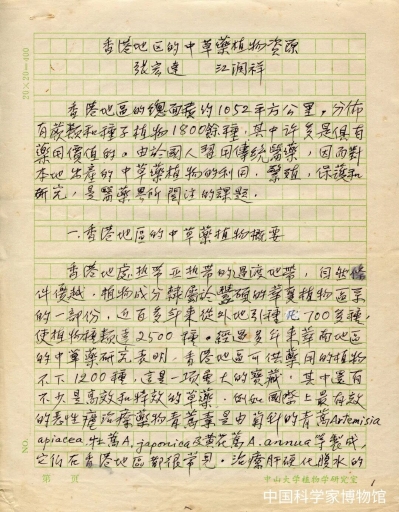 香港地区的中草藥植物资源
张宏達 江润祥
香港地區的總面積約1052平方公里，分佈
有蕨類和種子植物1800餘種，其中许多是俱有
藥用價值的。由於國人習用傳統醫藥，因而對
本地出產的中草藥植物的利用，繁殖，保護和
研究，是醫藥界所関注的课题。
一.香港地區的中草藥植物概要
香港地處热带亚热带的过渡地带，自然條
件優越，植物成分隸屬於豐碩的華夏植物區系
的一部份，近百多年来從外地引種 700多種，
使植物種類達2500種。經過多年来華南地區
的中草藥研究表明，香港地區可供藥用的植物
不下1200種，這是一项重大的寶藏，其中還有
不少是高效和特效的草藥，例如國際上最有效
的恶性瘧治療藥物青蒿素是由菊科的青蒿Artemisia
apiacea.牡蒿A.japonica及黄花蒿A.annua等製成，
它们在香港地區都很常見。治療肝硬化腹水的
20×20=400
NO.
第 页
中山大学植物学研究室
1
中国科学家博物馆